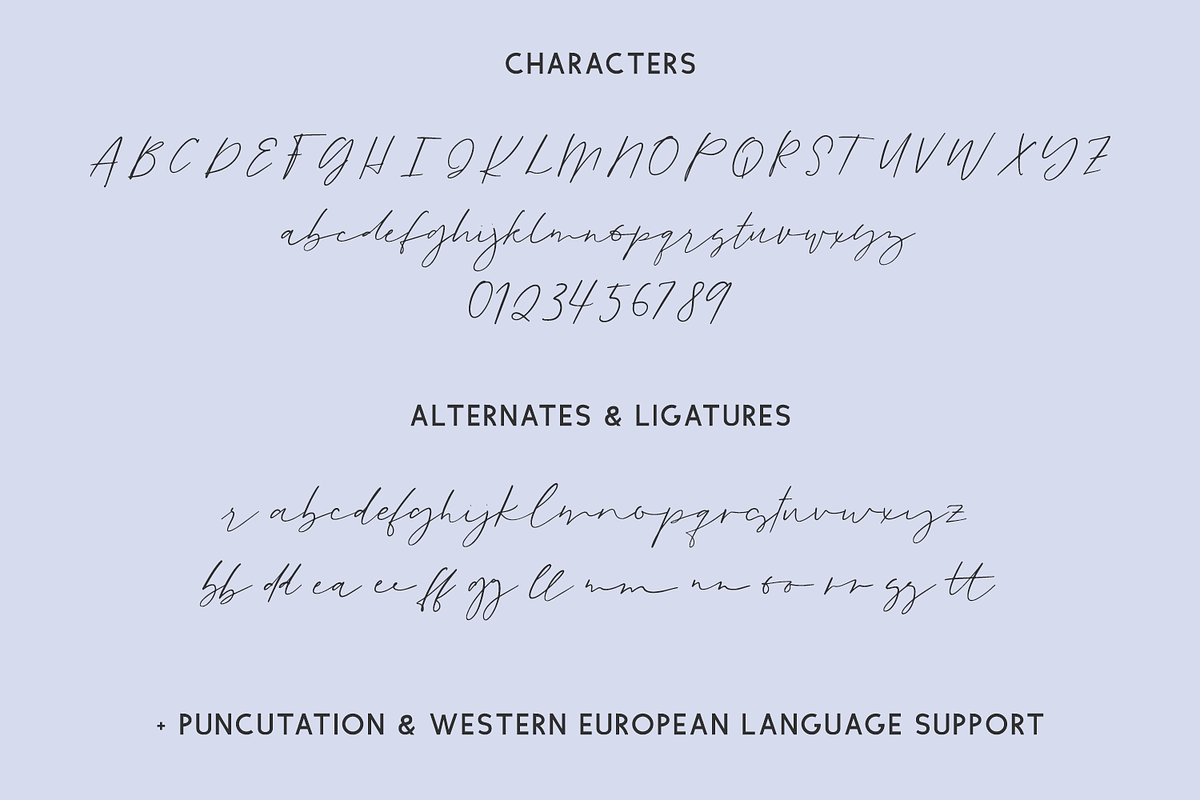 CHARACTERS
ABCDEFGHIJKLMNOPQRSTUVWXYZ
abcdefghijklmnopqrstuvwxyz
0123456789
ALTERNATES & LIGATURES
r abcdefghijklmnopqrstuvwxyz
bb dd ea ee ff gg ll mm nn oo rr ss tt
+ PUNCUTATION & WESTERN EUROPEAN LANGUAGE SUPPORT